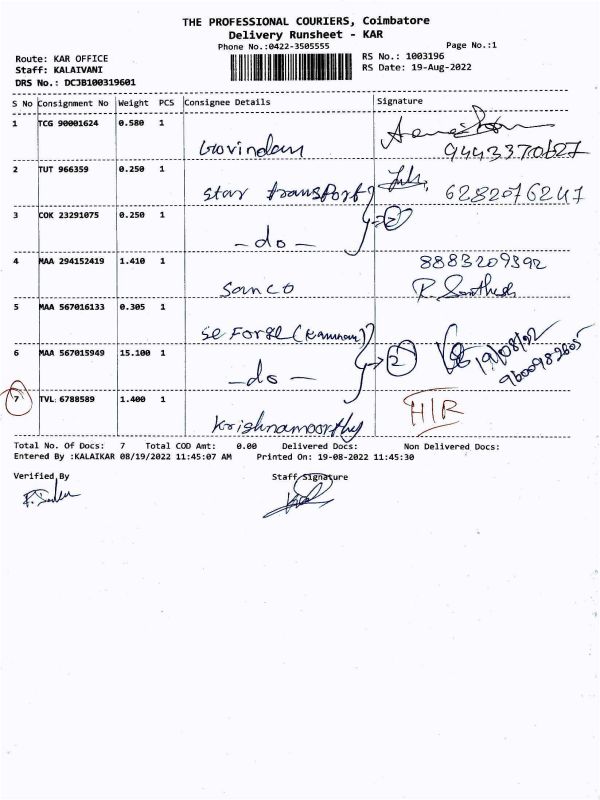 THE PROFESSIONAL COURIERS, Coimbatore
Delivery Runsheet - KAR
Phone No.:0422-3505555
Page No.:1
Route: KAR OFFICE
RS No.: 1003196
Staff: KALAIVANI
RS Date: 19-Aug-2022
DRS No.: DCJB100319601
S No Consignment No Weight PCS Consignee Details Signature
1 TCG 90001624 0.580 1
Govindan
2 TUT 966359 0.250 1
Star transport 6282076247
3 COK 23291075 0.250 1
2
- do -
4 MAA 294152419 1.410 1 8883209392
Sanco
5 MAA 567016133 0.305 1
Se Forge
6 MAA 567015949 15.100 1 2 19/08/22
- do - 9600982605
7 TVL 6788589 1.400 1 H/R
Krishnamoorthy
Total No. Of Docs: 7 Total COD Amt: 0.00 Delivered Docs: Non Delivered Docs:
Entered By :KALAIKAR 08/19/2022 11:45:07 AM Printed On: 19-08-2022 11:45:30
Verified By Staff Signature